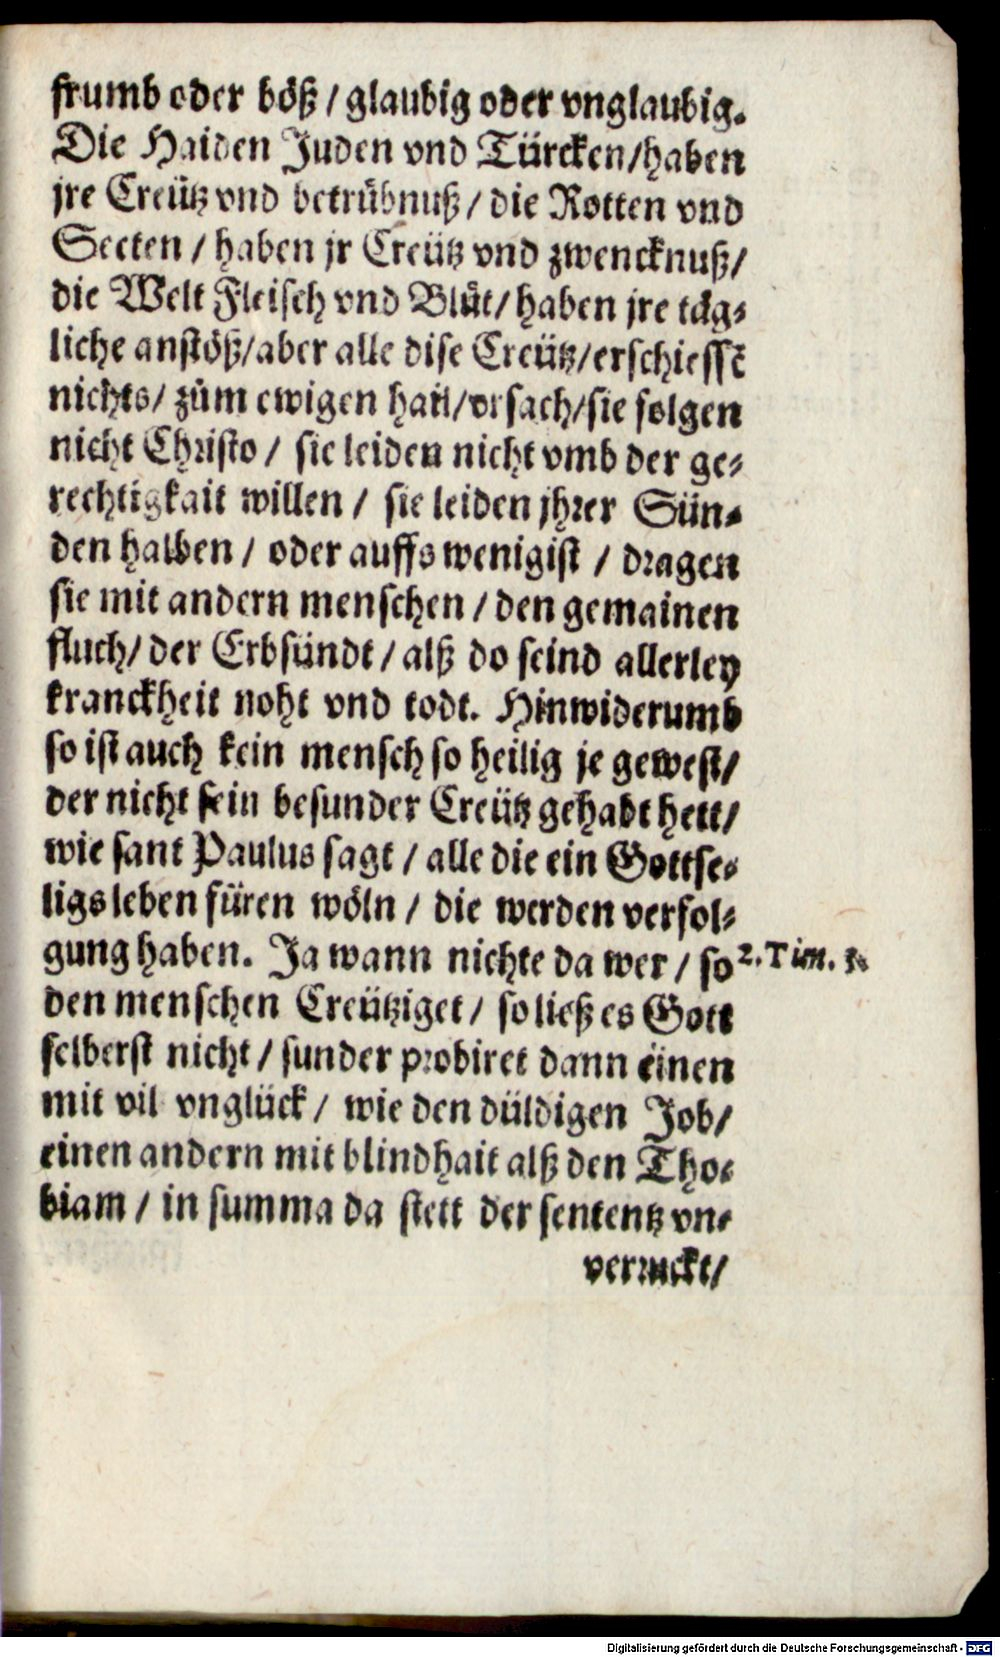 frumb oder böß / glaubig oder vnglaubig.
Die Haiden Juden vnd Türcken/haben
jre Creütz vnd betrübnuß / die Rotten vnd
Secten / haben jr Creütz vnd zwencknuß/
die Welt Fleisch vnd Blůt/ haben jre täg⸗
liche anstöß/aber alle dise Creütz/erschiessē
nichts/ zům ewigen hail/vrsach/sie folgen
nicht Christo / sie leiden nicht vmb der ge⸗
rechtigkait willen / sie leiden jhrer Sün⸗
den halben / oder auffs wenigist / dragen
sie mit andern menschen / den gemainen
fluch/ der Erbsündt / alß do seind allerley
kranckheit noht vnd todt. Hinwiderumb
so ist auch kein mensch so heilig je gewest/
der nicht sein besunder Creütz gehabt hett/
wie sant Paulus sagt / alle die ein Gottse⸗
ligs leben füren wöln / die werden verfol⸗
gung haben. Ja wann nichte da wer / so
2. Tim. 3.
den menschen Creütziget / so ließ es Gott
selberst nicht / sunder probiret dann einen
mit vil vnglück / wie den düldigen Job/
einen andern mit blindhait alß den Tho⸗
biam / in summa da stett der sententz vn⸗
verruckt/
Digitalisierung gefördert durch die Deutsche Forschungsgemeinschaft - DFG